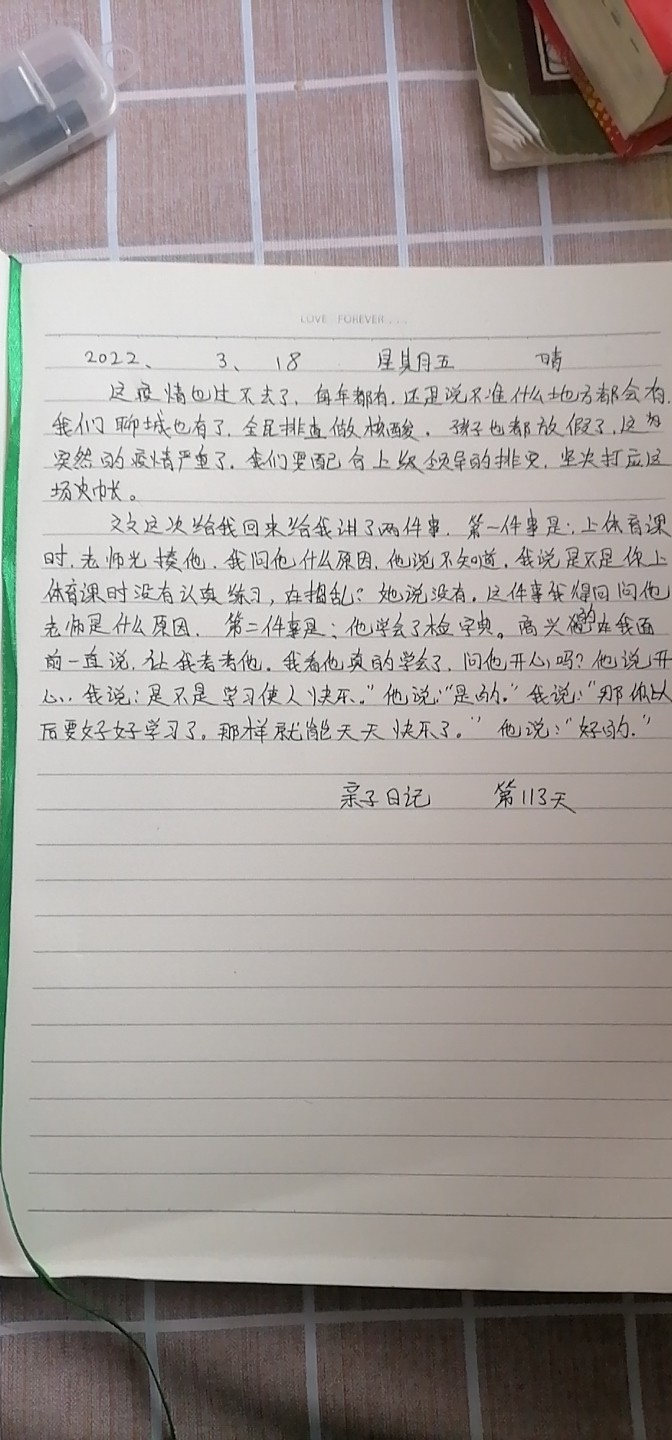 LOVE FOREVER...
2022、 3、18 星期五 晴
这疫情也过不去了，每年都有，还是说不准什么地方都会有，
我们聊城也有了，全民排查做核酸，孩子也都放假了，这
突然的疫情严重了，我们要配合上级领导的排，坚决打应这
场决帐。
文文这次给我回来给我讲了两件事，第一件事是：上体育课
时，老师光揍他，我问他什么原因，他说不知道，我说是不是你上
体育课时没有认真练习，在捣乱？她说没有，这件事我得问问他
老师是什么原因，第二件事是：他学会了检字典。高兴的在我面
前一直说，让我考考他，我看他真的学会了，问他开心吗？他说开
心，我说：是不是学习使人快乐。”他说：“是的。”我说：“那你以
后要好好学习了，那样就能天天快乐了。” 他说：“好的.”
亲子日记 第113天